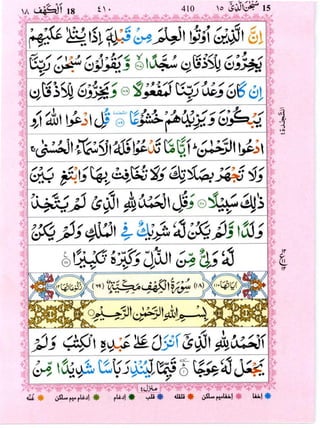 ١٨ اَلْكَهْف 18 ٤١٠ 410 سُبْحٰنَ الَّذِىْ ١٥ 15
اِنَّ الَّذِيْنَ اُوْتُوا الْعِلْمَ مِنْ قَبْلِهٖٓ اِذَا يُتْلٰى عَلَيْهِمْ
يَخِرُّوْنَ لِلْاَذْقَانِ سُجَّدًا وَّيَقُوْلُوْنَ سُبْحٰنَ رَبِّنَآ
اِنْ كَانَ وَعْدُ رَبِّنَا لَمَفْعُوْلًا وَيَخِرُّوْنَ لِلْاَذْقَانِ
يَبْكُوْنَ وَيَزِيْدُهُمْ خُشُوْعًا قُلِ ادْعُوا اللّٰهَ اَوِ
ادْعُوا الرَّحْمٰنَ اَيًّا مَّا تَدْعُوْا فَلَهُ الْاَسْمَآءُ الْحُسْنٰى
وَلَا تَجْهَرْ بِصَلَاتِكَ وَلَا تُخَافِتْ بِهَا وَابْتَغِ بَيْنَ
ذٰلِكَ سَبِيْلًا وَقُلِ الْحَمْدُ لِلّٰهِ الَّذِىْ لَمْ يَتَّخِذْ
وَلَدًا وَّلَمْ يَكُنْ لَّهٗ شَرِيْكٌ فِى الْمُلْكِ وَلَمْ يَكُنْ
لَّهٗ وَلِىٌّ مِّنَ الذُّلِّ وَكَبِّرْهُ تَكْبِيْرًا
اٰيَاتُهَا ١١٠ (١٨) سُوْرَةُ الْكَهْفِ مَكِّيَّةٌ (٦٩) رُكُوْعَاتُهَا ١٢
بِسْمِ اللّٰهِ الرَّحْمٰنِ الرَّحِيْمِ
اَلْحَمْدُ لِلّٰهِ الَّذِىْٓ اَنْزَلَ عَلٰى عَبْدِهِ الْكِتٰبَ وَلَمْ
يَجْعَلْ لَّهٗ عِوَجًا قَيِّمًا لِّيُنْذِرَ بَاْسًا شَدِيْدًا مِّنْ
منزل٤
اخفا اخفا میم ساکن قلقله قلب ادغام ادغام میم ساکن غنّه